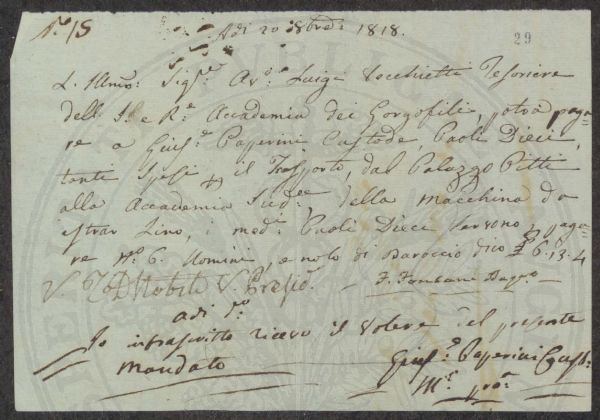 N.º 15
Adi 20 8bre 1818.
29
L'Illmo: Sigre Avo: Luigi Vocchietti Tesoriere
dell I. e Re. Accademia dei Gorgofili, potrà paga=
re a Giuse. Paperini Custode, Paoli Dieci,
tanti spesi p il Trasporto, dal Palazzo Pitti
alla Accademia Sudee. della Macchina da
strar Lino, i med.i Paoli Dieci servono p paga=
re N.º 6. Uomini, e nolo di Baroccio dico £ 6.13.4
V. Nobili V. Presid.
F. Tambani
adi do
Io infrascritto ricevo il Valore del presente
Mandato
Giuse. Paperini Cust:
Mo. pro.